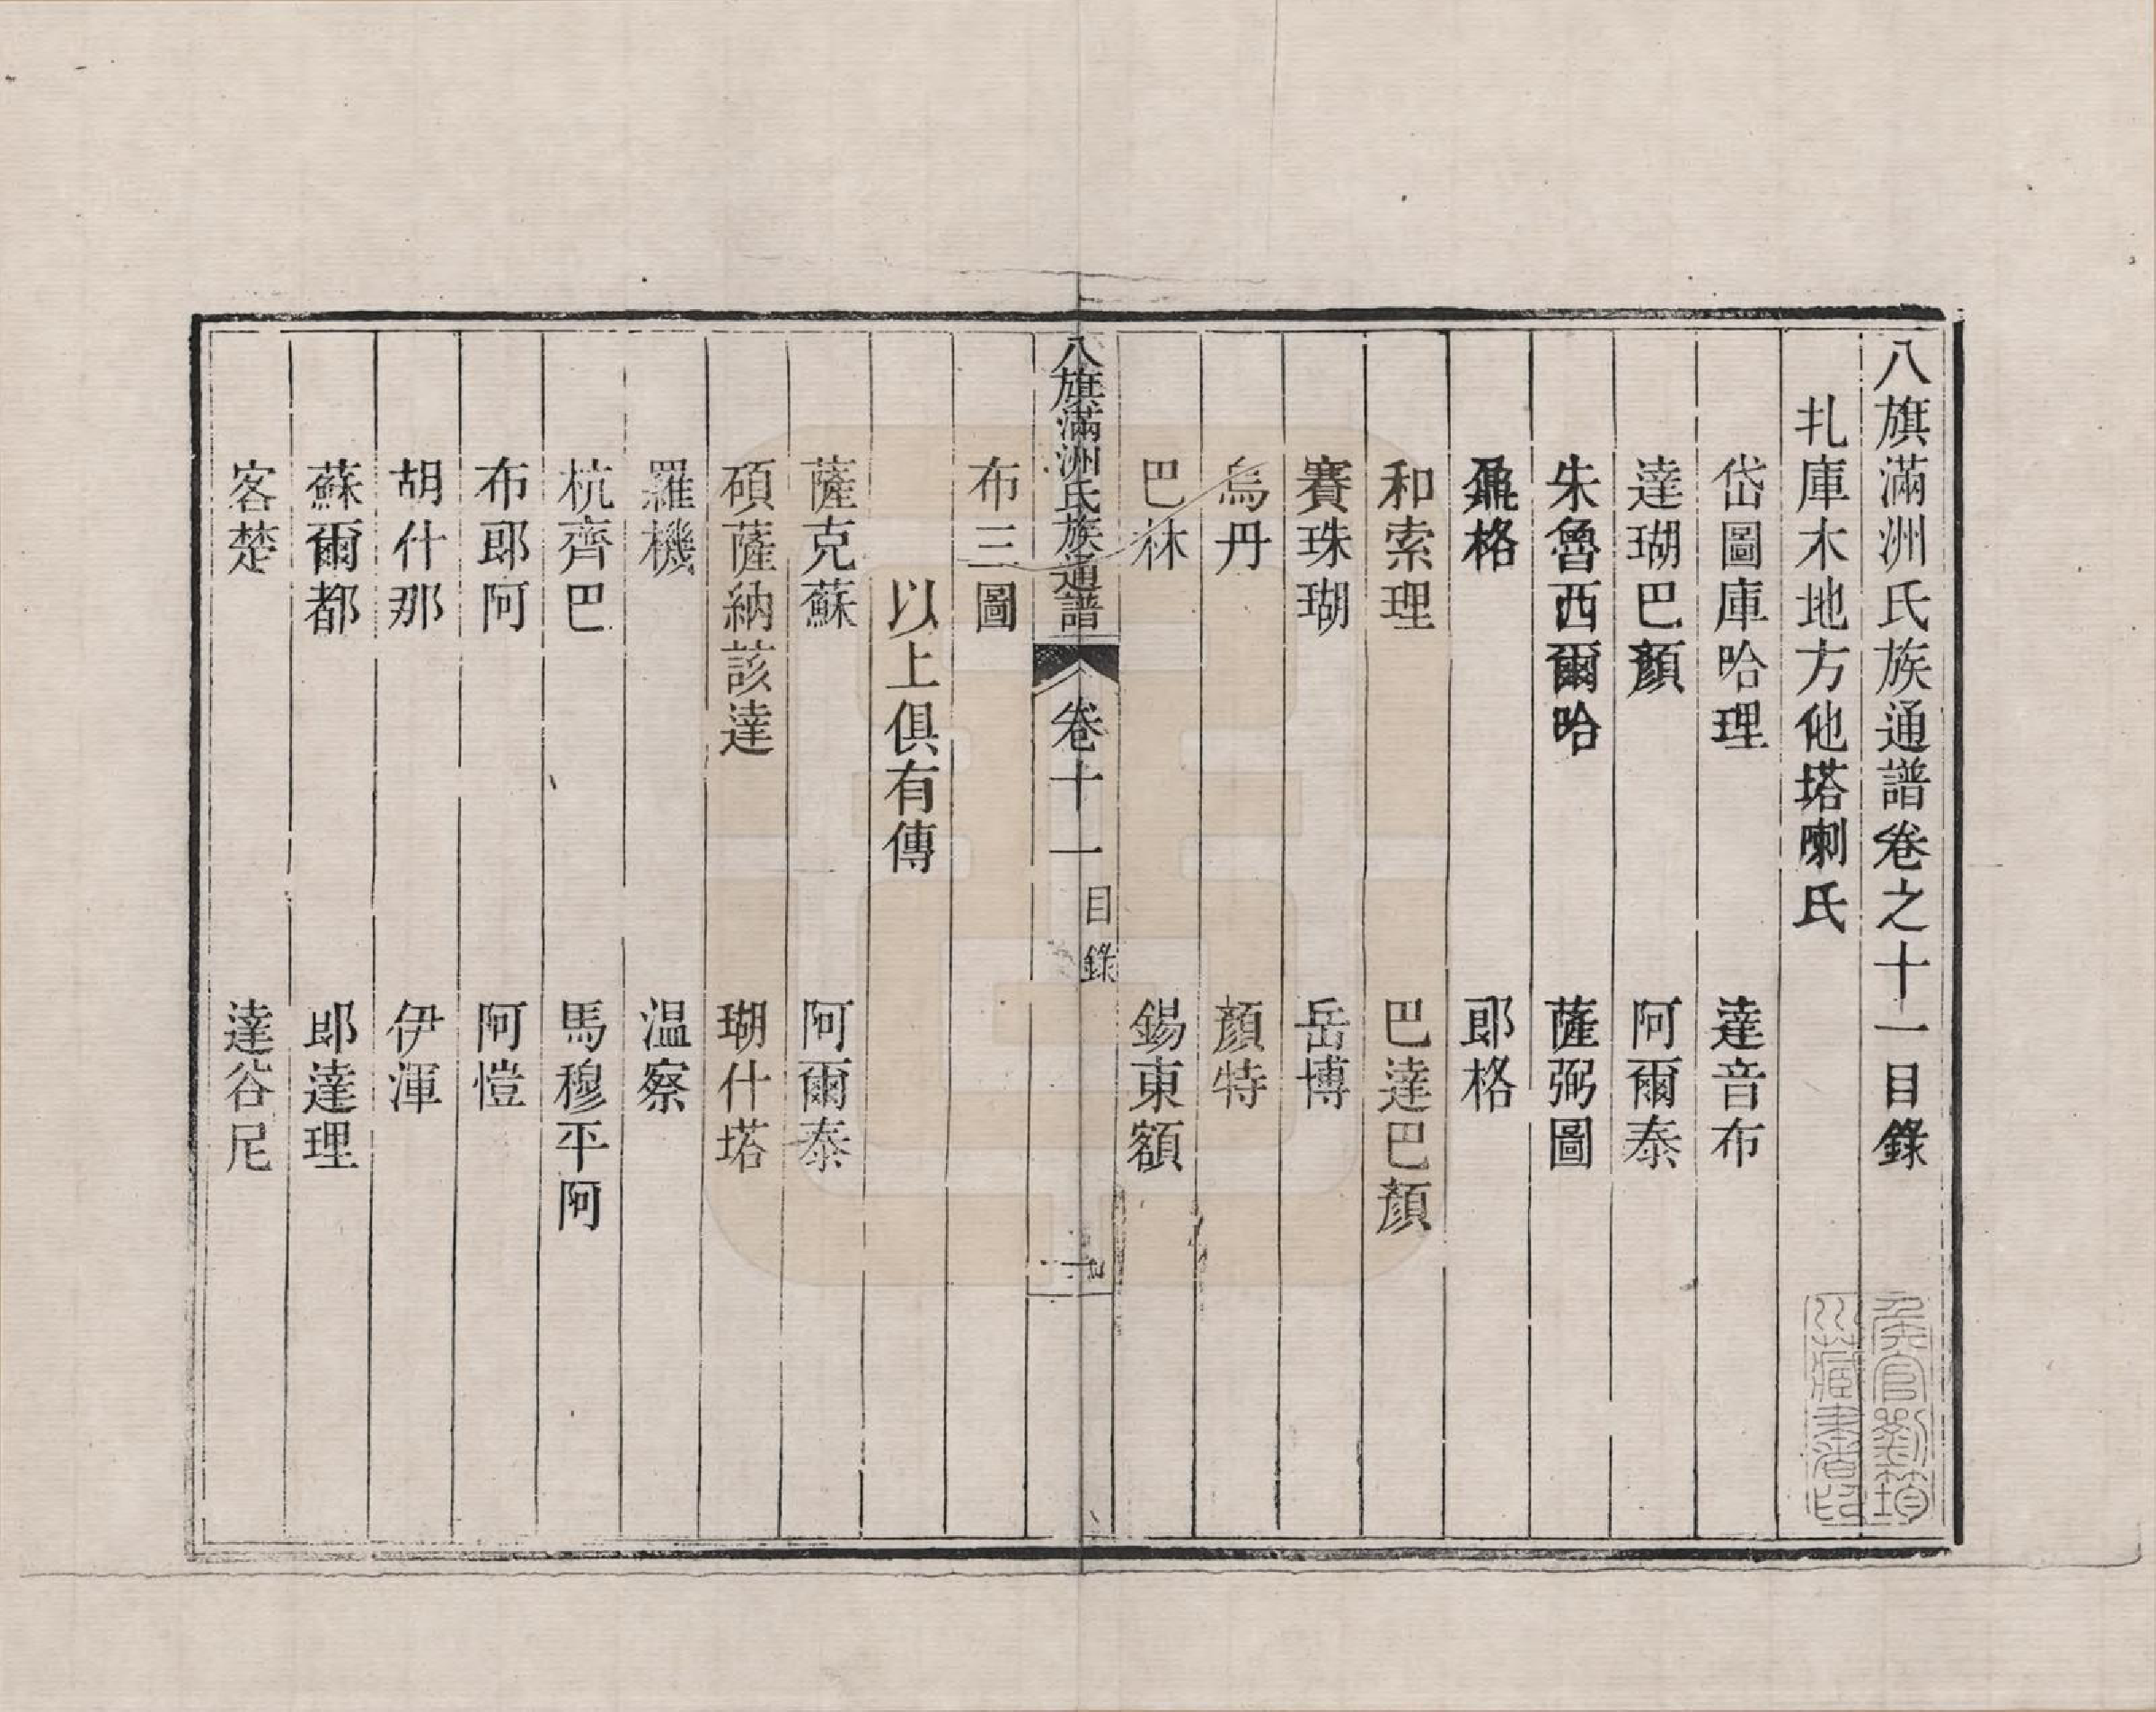 八旗滿洲氏族通譜卷之十一目錄
扎庫木地方他塔喇氏
岱圖庫哈理　達音布
達瑚巴顏　阿爾泰
朱魯西爾哈　薩弼圖
鼐格　郎格
和索理　巴達巴顏
賽珠瑚　岳博
烏丹　顏特
巴林　錫東額
八旗滿洲氏族通譜　卷十一　目錄　一
布三圖
以上俱有傳
薩克蘇　阿爾泰
碩薩納該達　瑚什塔
羅機　温察
杭齊巴　馬穆平阿
布郎阿　阿愷
胡什那　伊渾
蘇爾都　郎達理
客楚　達谷尼
侯官劉筠
川藏書畵印